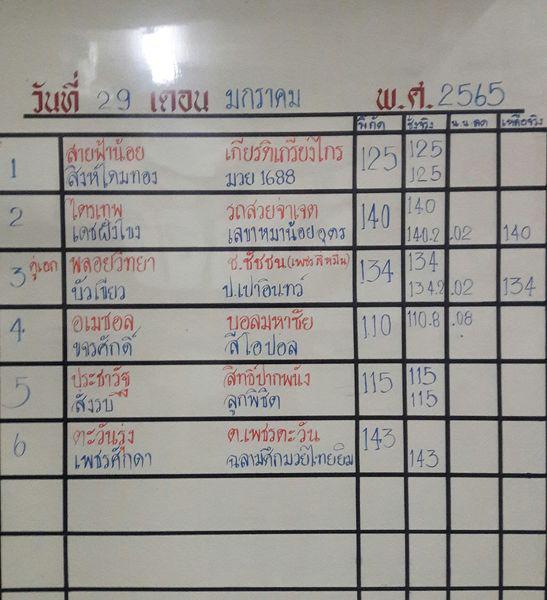 วันที่ 29 เดือน มกราคม พ.ศ. 2565
พิกัด ชั่งจริง น.น.ลด เหลือจริง
1 สายฟ้าน้อย เกียรติเกรียงไกร 125 125
สิงห์โดมทอง มวย 1688 125
2 ไตรเทพ รถสวยจ่าเจต 140 140
เดชฝั่งโขง เลขาหมาน้อยอุดร 140.2 .02 140
3 คู่เอก พลอยวิทยา ช.ชัชชน (เพชรสี่หมื่น) 134 134
บัวเขียว ป.เปาอินทร์ 134.2 .02 134
4 อเมซอล บอลมหาชัย 110 110.8 .08
ขจรศักดิ์ สีโอปอล
5 ประชารัฐ สิทธิ์ปากพนัง 115 115
สั่งรบ ลูกพิชิต 115
6 ตะวันรุ่ง ต.เพชรตะวัน 143
เพชรศักดา ฉลามศึกมวยไทยยิม 143